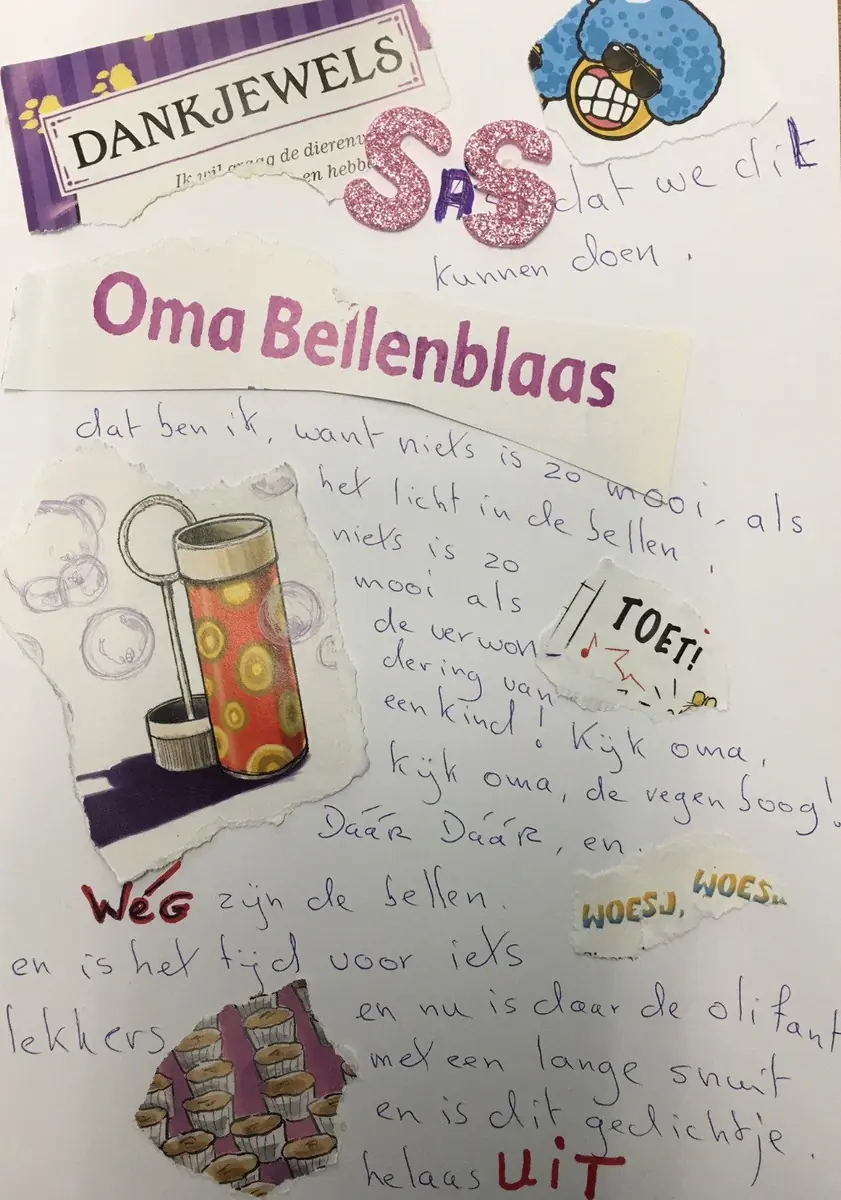 DANKJEWELS
Ik wil graag de dierenv
en hebbe
SAS dat we dit
kunnen doen.
Oma Bellenblaas
dat ben ik, want niets is zo mooi, als
het licht in de bellen,
niets is zo
mooi als
de verwon
dering van
een kind! Kijk oma,
TOET!
kijk oma, de regenboog!
DÁÁR DÁÁR, en.
WéG zijn de bellen.
WOESJ, WOESJ
en is het tijd voor iets
lekkers
en nu is daar de olifant
met een lange snuit
en is dit gedichtje.
helaas UiT